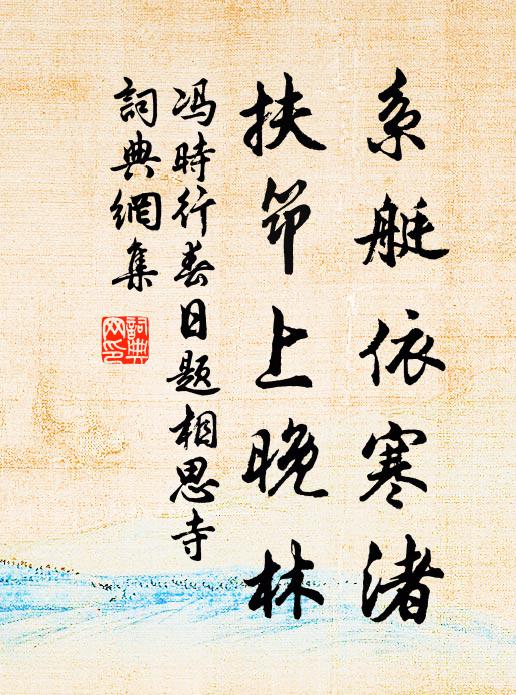 系艇依寒渚
扶筇上晚林
冯時行春日题相思寺
詞典網集
詞典
网印